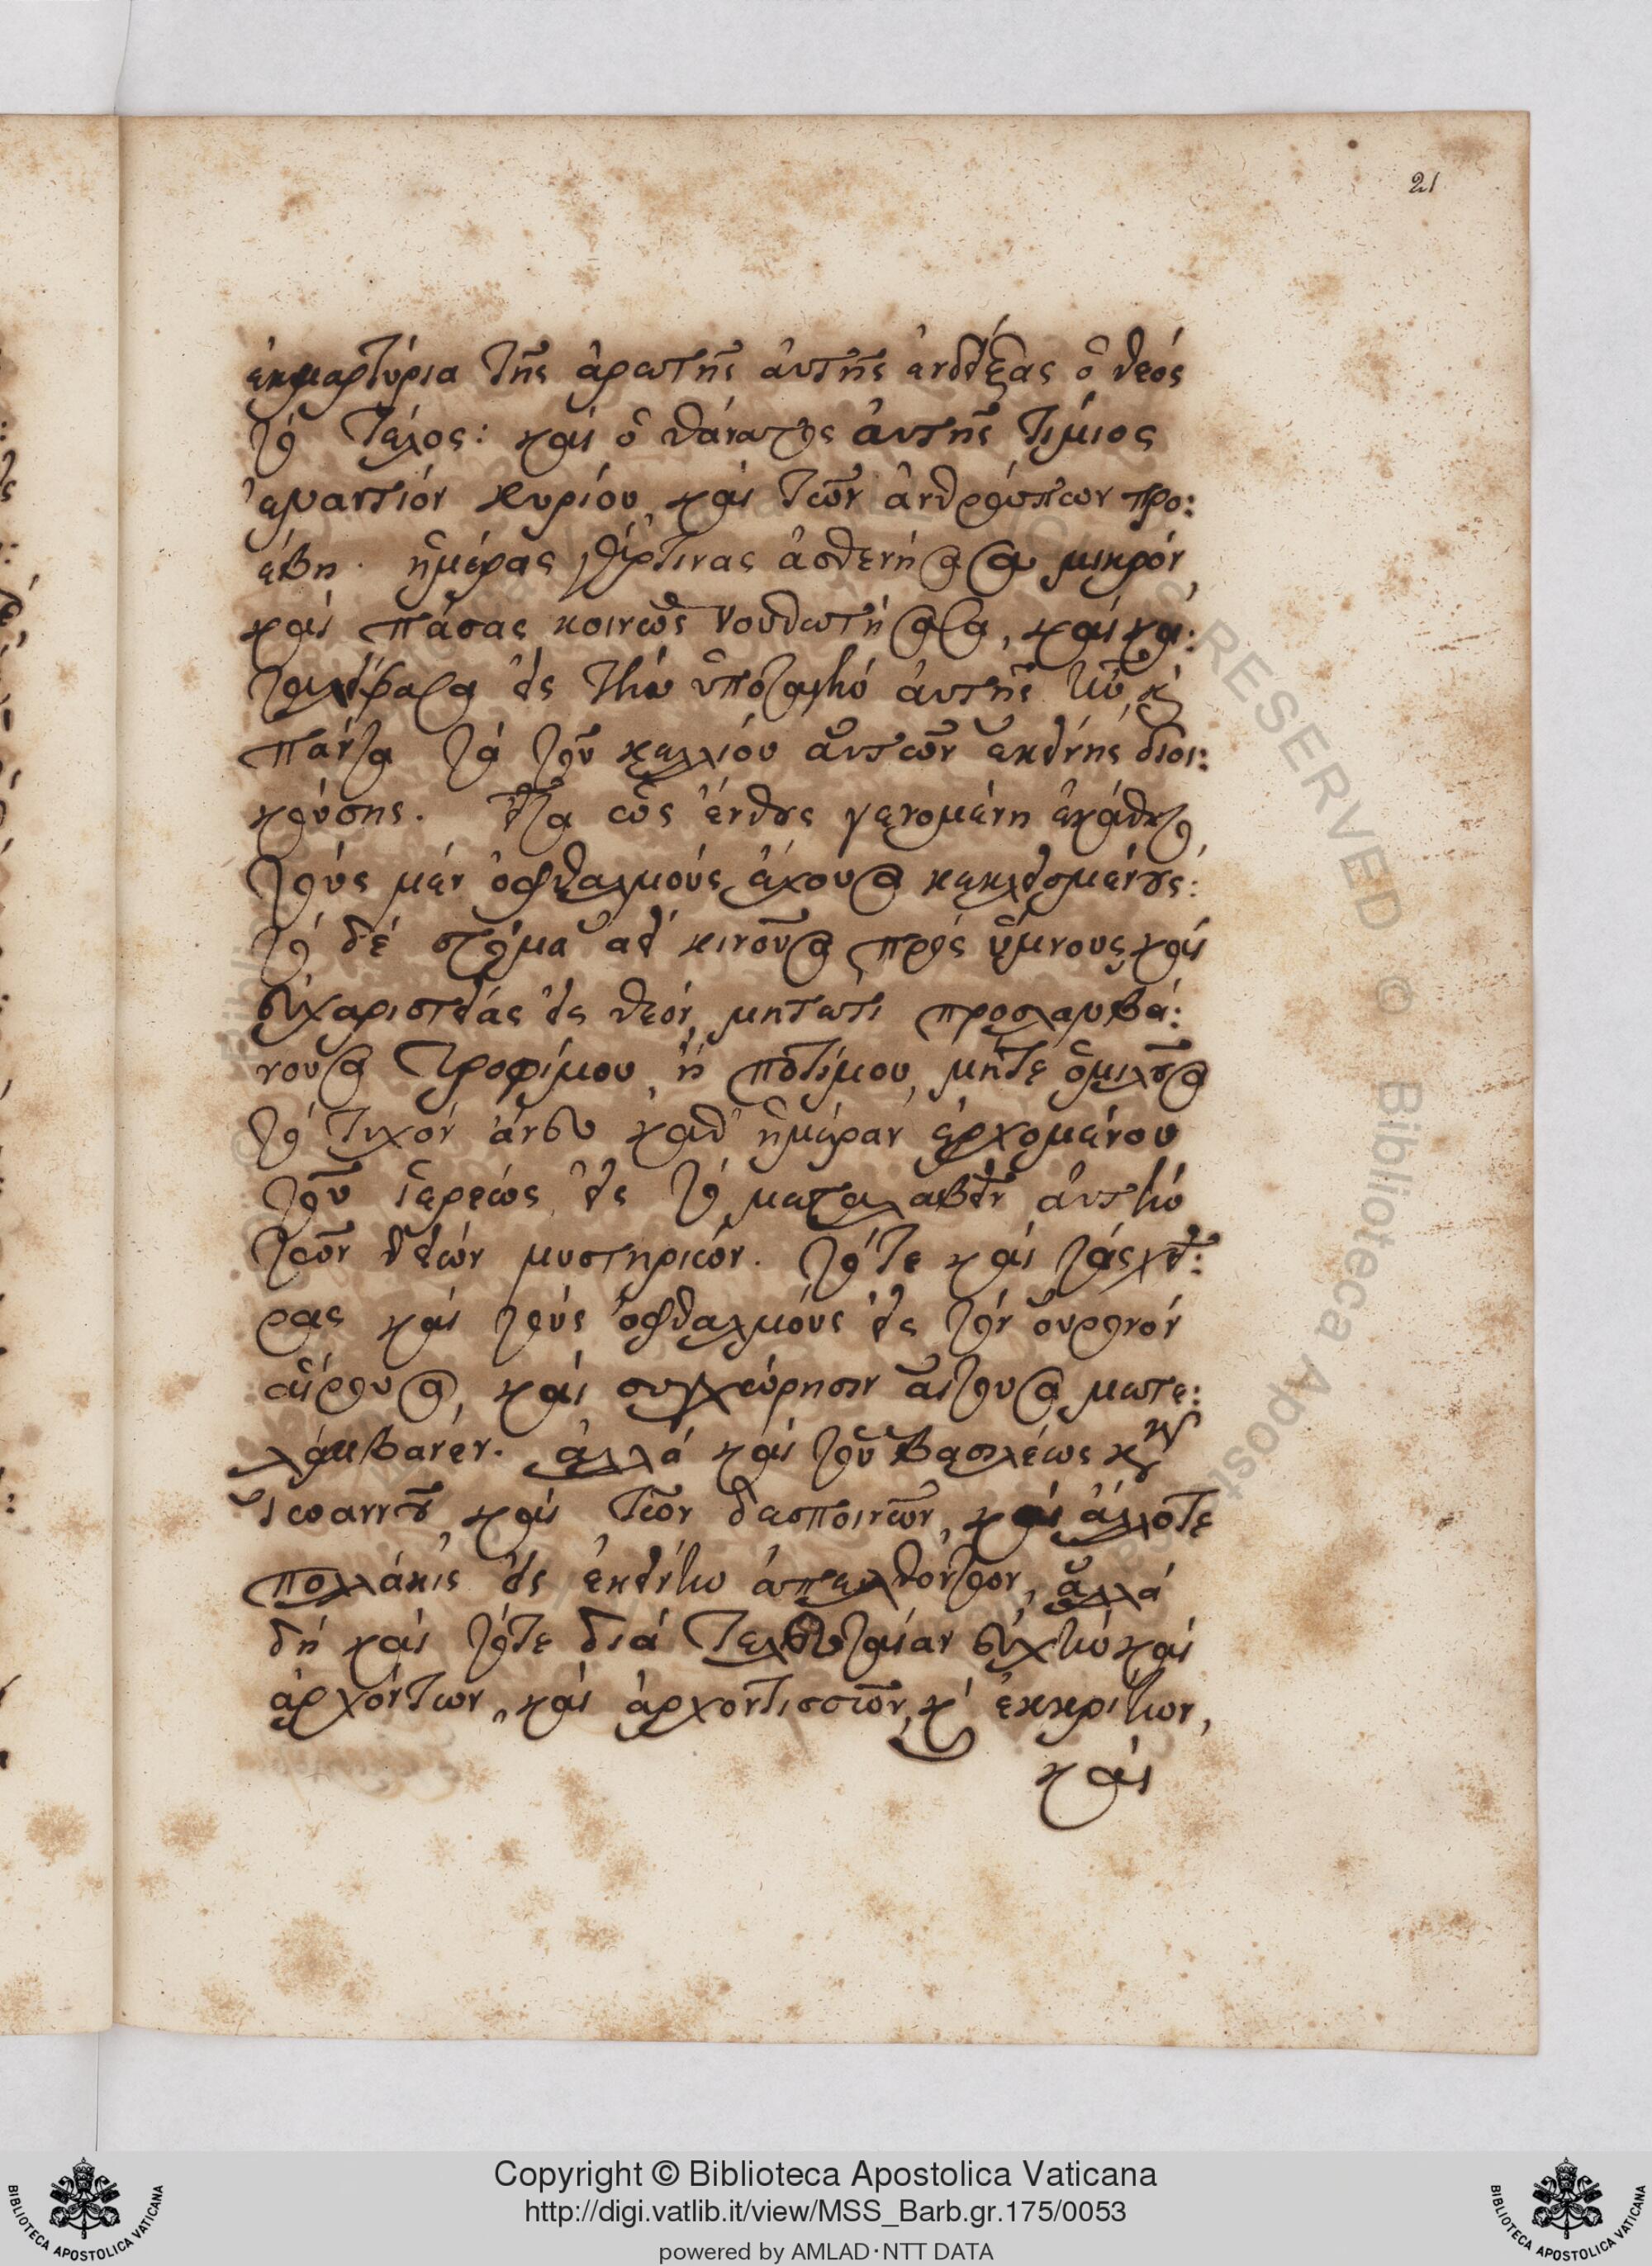 21
ἐκμαρτύρια τῆς ἀρετῆς ἀυτῆς ἐνδείξας ὁ θεός
τό τέλος: καί ὁ θάνατος ἀυτῆς τίμιος
ἐναντιόν κυρίου, καί τῶν ἀνθρώπων προ:
έβη. ἡμέρας γάρ τινας ἀσθενήσασα μικρόν,
καί πάσας κοινῶς νουθετήσασα, καί κα:
εἰς τήν ὑποταγήν ἀυτῆς
πάντα τά τοῦ κελλίου ἀυτῶν ἐκείνης διοι:
κούσης. εἶτα ὡς ἔνθους γενομένη ἐκάθητο,
τούς μέν ὀφθαλμούς ἔχουσα κεκλεισμένους:
τό δέ στόμα ἀεί κινοῦσα πρός ὕμνους, καί
εὐχαριστείας εἰς θεόν, μήτε τι προσλαμβά:
νουσα τροφίμου, ἤ ποτίμου, μήτε ὁμιλοῦσα
τό τυχόν ἄνευ καθ' ἡμέραν ἐρχομένου
τοῦ ἱερέως, εἰς τό μεταλαβεῖν ἀυτήν
τῶν θείων μυστηρίων. τότε καί τάς χεῖ:
ρας καί τούς ὀφθαλμούς εἰς τόν οὐρανόν
αἴρουσα, καί συγχώρησιν αἰτοῦσα μετε:
λάμβανεν. ἀλλά καί τοῦ βασιλέως κυροῦ
Ἰωαννοῦ, καί τῶν δεσποινῶν, καί ἄλλοτε
πολλάκις εἰς ἐκείνην ἀπελθόντων, ἀλλά
δή καί τότε διά τελευταίαν εὐχήν καί
ἀρχόντων, καί ἀρχοντισσῶν, κ' ἐκκρίτων,
καί
Copyright © Biblioteca Apostolica Vaticana
http://digi.vatlib.it/view/MSS_Barb.gr.175/0053
powered by AMLAD·NTT DATA
BIBLIOTECA APOSTOLICA VATICANA
BIBLIOTECA APOSTOLICA VATICANA